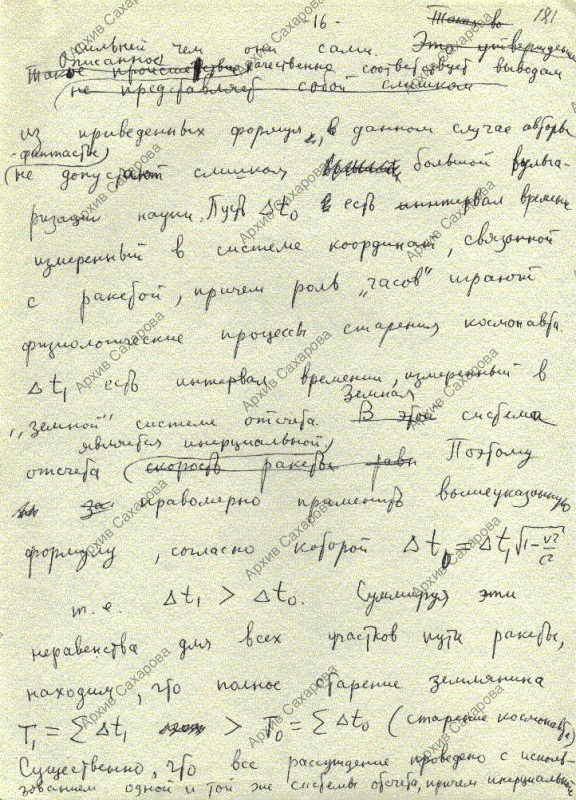 -16-
181
Такого
сильней чем они сами. Это утверждение
Описанное
Такое происшествие качественно соответствует выводам
не представляет собой слишком
из приведенных формул, в данном случае авторы
-фантасты
не допускают слишком большой вульга-
ризации науки. Пусть Δt₀ есть интервал времени
измеренный в системе координат, связанной
с ракетой, причем роль „часов" играют
физиологические процессы старения космонавта.
Δt₁ есть интервал времени, измеренный в
Земная
„земной" системе отсчета. В этой система
является инерциальной
отсчета скорость ракеты равн Поэтому
правомерно применить вышеуказанную
формулу, согласно которой Δt₀ = Δt₁√1-v²/c²
т.е. Δt₁ > Δt₀. Суммируя эти
неравенства для всех участков пути ракеты,
находим, что полное старение землянина
T₁ = ∑Δt₁ > T₀ = ∑Δt₀ (старение космонавта)
Существенно, что все рассуждение проведено с исполь-
зованием одной и той же системы отсчета, причем инерциальной
Архив Сахарова